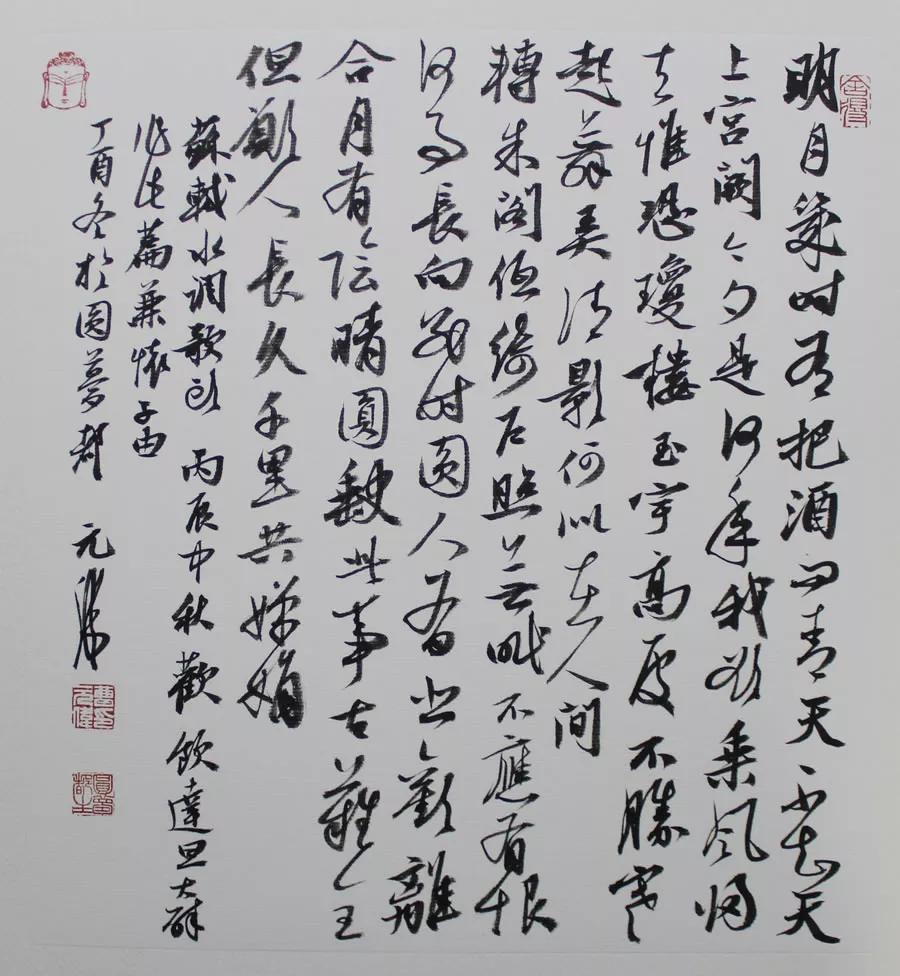 明月幾時有把酒問青天不知天
上宮闕今夕是何年我欲乘風歸
去惟恐瓊樓玉宇高處不勝寒
起舞弄清影何似在人間
轉朱閣低綺戶照無眠不應有恨
何事長向別時圓人有悲歡離
合月有陰晴圓缺此事古難全
但願人長久千里共嬋娟
蘇軾水調歌頭 丙辰中秋歡飲達旦大醉
作此篇兼懷子由
丁酉冬於圓夢 元
舍得